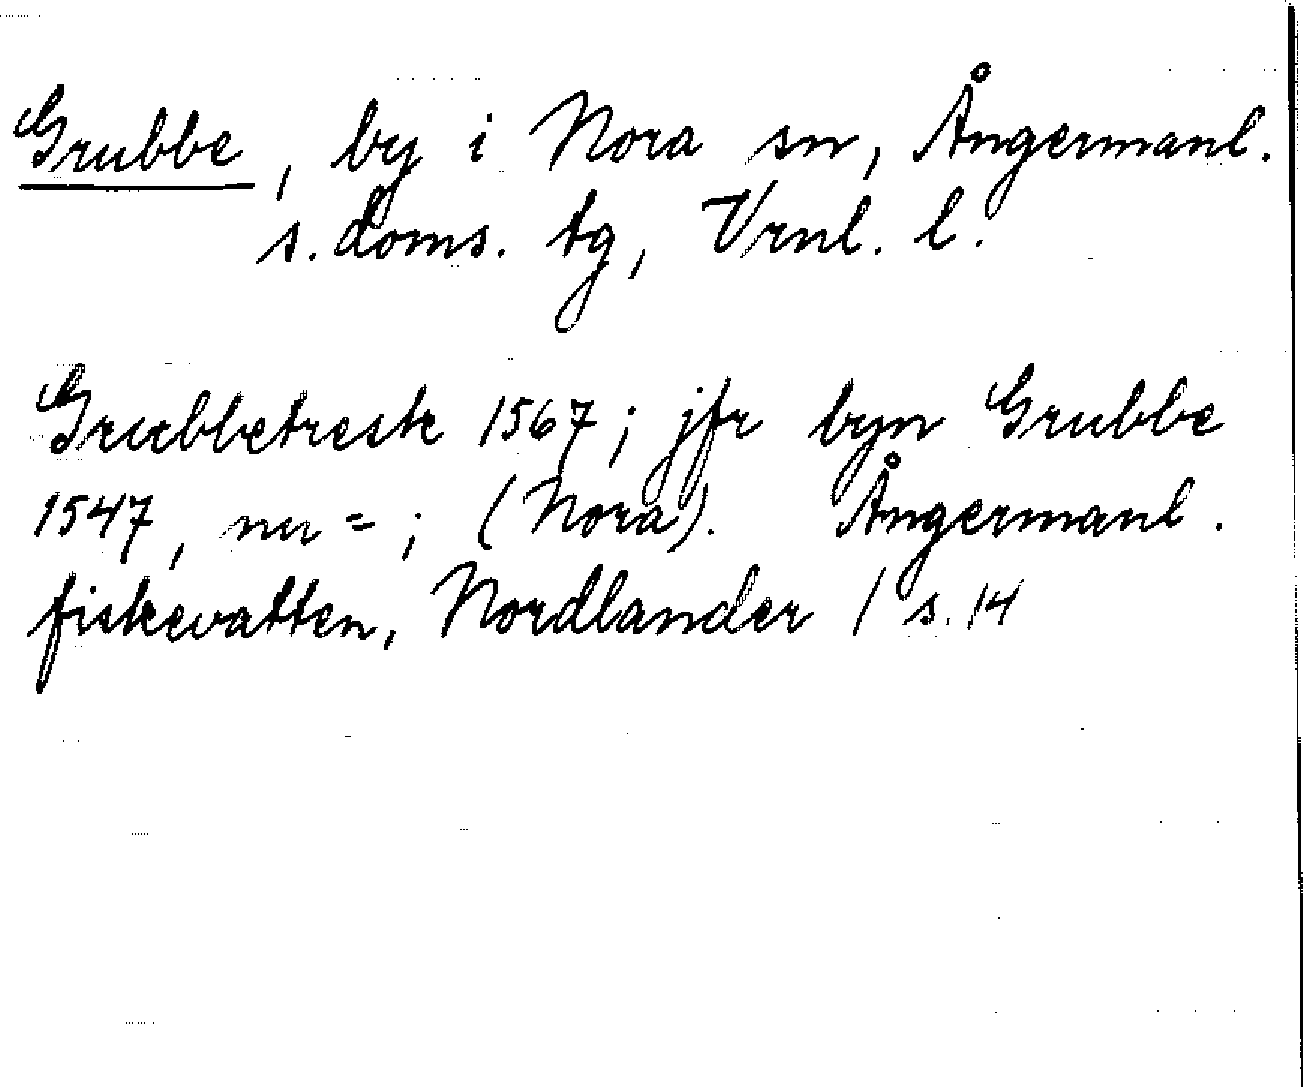 Grubbe, by i Nora sn, Ångermanl.
s. doms. tg, Vrnl. l.
Grubbetresk 1567; jfr byn Grubbe
1547, nu = ; (Nora). Ångermanl.
fiskevatten, Nordlander / s. 14